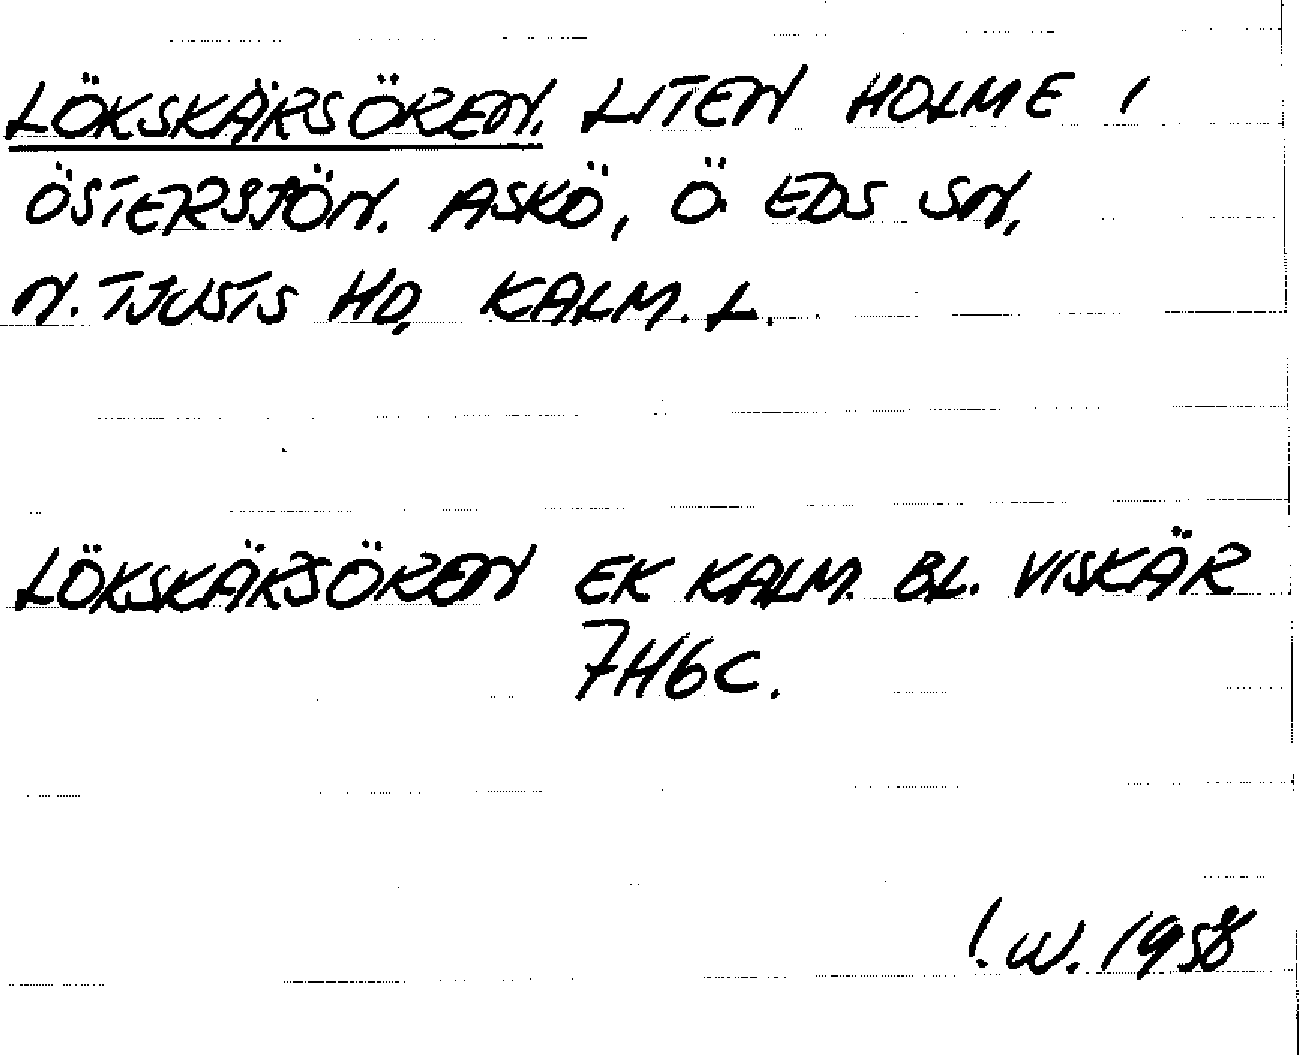 LÖKSKÄRSÖREN. LITEN HOLME I
ÖSTERSJÖN. ASKÖ, Ö. EDS SN,
N. TJUSTS HD, KALM. L.
LÖKSKÄRSÖREN EK KALM. BL. VISKÄR
7H6C.
!W. 1958